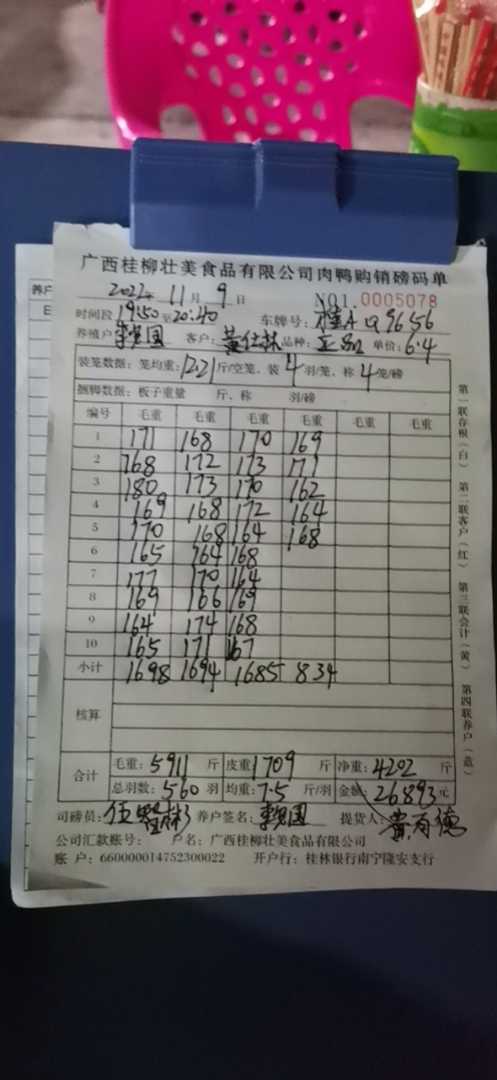 广西桂柳壮美食品有限公司肉鸭购销磅码单
2022年 11月 9日 NO1.0005078
时间段 19:50至20:40 车牌号: 桂A Q9656
养殖户 李 国 客户: 黄仕林 品种: 正品 单价: 6.4
装笼数据: 笼均重: 12.21 斤/空笼、装 4 羽/笼、称 4 笼/磅
捆脚数据: 板子重量 斤、称 羽/磅
编号 毛重 毛重 毛重 毛重 毛重 毛重
1 171 168 170 169
2 168 172 173 171
3 180 173 170 162
4 169 168 172 164
5 170 168 164 168
6 165 164 168
7 177 170 164
8 169 166 169
9 164 174 168
10 165 171 167
小计 1698 1694 1685 834
核算
合计 毛重: 5911 斤 皮重: 1709 斤 净重: 4202 斤
总羽数: 560 羽 均重: 7.5 斤/羽 金额: 26893 元
司磅员: 伍 彬 养户签名: 李 国 提货人: 黄有德
公司汇款账号: 户名: 广西桂柳壮美食品有限公司
账 户: 660000014752300022 开户行: 桂林银行南宁隆安支行
第一联存根(白) 第二联客户(红) 第三联会计(黄) 第四联养户(蓝)
养户